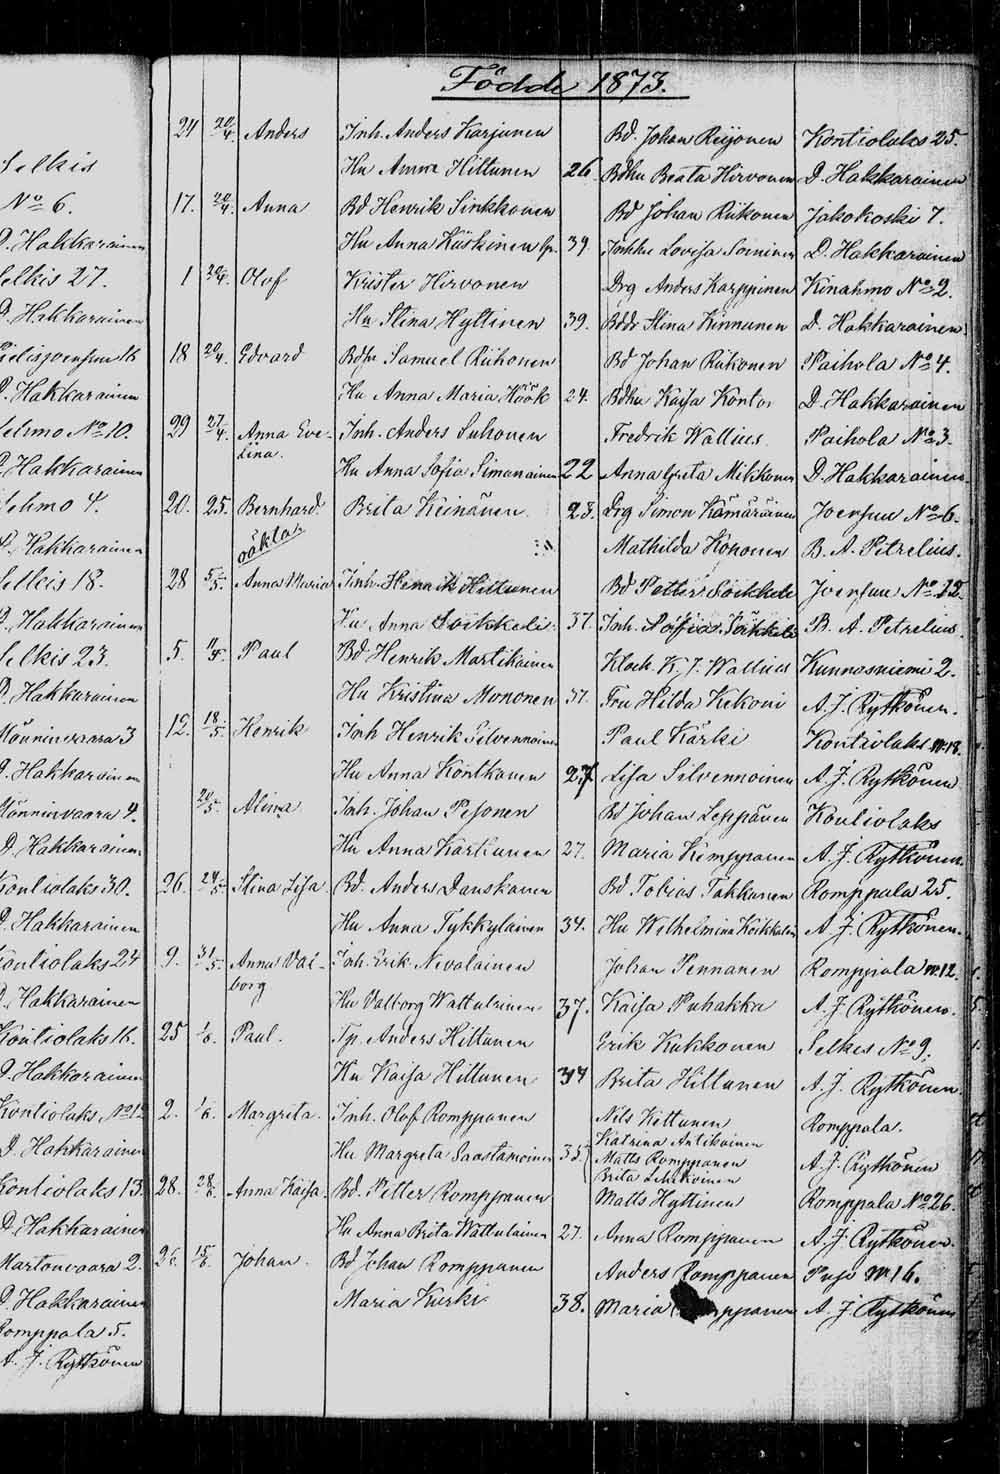 Selkis
No 6.
D. Hakkarainen
Selkis 27.
D. Hakkarainen
D. Hakkarainen
No 10.
D. Hakkarainen
4.
D. Hakkarainen
Selkis 18.
D. Hakkarainen
Selkis 23.
D. Hakkarainen
Mönninvaara 3
D. Hakkarainen
Mönninvaara 4.
D. Hakkarainen
Kontiolaks 30.
D. Hakkarainen
Kontiolaks 24
D. Hakkarainen
Kontiolaks 16.
D. Hakkarainen
Kontiolaks, No 12
D. Hakkarainen
Kontiolaks 13.
D. Hakkarainen
Martonvaara 2.
D. Hakkarainen
Romppala 5.
A. J. Rytkönen
Födde 1873.
24 20/4. Anders Inh. Anders Karjunen Bd. Johan Reijonen Kontiolaks 25.
Hu Anna Hiltunen 26. Bdhu Beata Hirvonen D. Hakkarainen
17. 20/4. Anna Bd Henrik Sinkkonen Bd Johan Riikonen Jakokoski 7.
Hu Anna Kiiskinen 39. Lovisa Soininen D. Hakkarainen
1 20/4. Olof Krister Hirvonen Drg Anders Karppinen Kinahmo No 2.
Hu Stina Hyttinen 39. Bddr Stina Kinnunen D. Hakkarainen
18 20/4. Edvard Bdsr Samuel Riikonen Bd Johan Riikonen Paihola No 4.
Hu Anna Maria Höök 24. Bdhu Kaisa Kontor D. Hakkarainen
29 27/4. Anna Eve- Inh. Anders Suhonen Fredrik Wallius. Paihola No 3.
lina. Hu Anna Sofia Simanainen 22 Anna Greta Mikkonen D. Hakkarainen.
20. 25. Bernhard Brita Keinänen. 23. Drg Simon Kämäräinen Joensuu No 6.
oäkta Mathilda Koponen B. A. Petrelius.
28 5/5. Anna Maria Inh. Henrik Hiltunen Bd Petter Soikkeli Joensuu No 12
Hu Anna Soikkeli. 37. Inh. Sofia Soikkeli B. A. Petrelius.
5. Paul Bd Henrik Martikainen Klock. K. J. Wallius Kunnasniemi 2.
Hu Kristina Mononen 37. Fru Hilda Kekoni A. J. Rytkönen.
12. 18/5. Henrik Inh Henrik Silvennoinen Paul Kärki Kontiolaks No 18.
Hu Anna Kontkanen 27 Lisa Silvennoinen A. J. Rytkönen
20/5. Alina Inh. Johan Pesonen Bd Johan Leppänen Kontiolaks
Hu Anna Karhunen 27. Maria Kemppanen A. J. Rytkönen.
26. 24/5. Stina Lisa Bd. Anders Danskanen Bd Tobias Takkunen Romppala 25.
Hu Anna Tykkyläinen 34. Hu Wilhelmina A. J. Rytkönen.
9. 31/5. Anna Val- Inh. Erik Nevalainen Johan Pennanen Romppala No 12.
borg Hu Valborg Wattulainen 37. Kaisa Puhakka A. J. Rytkönen.
25 1/6. Paul. Tp. Anders Hiltunen Erik Kukkonen Selkis No 9.
Hu Kaisa Hiltunen 34 Brita Hiltunen A. J. Rytkönen.
2. 1/6. Margreta. Inh. Olof Romppanen Nils Kettunen Romppala.
Katrina Antikainen
Hu Margreta Saastamoinen 35 Matts Romppanen A. J. Rytkönen
Brita
28. Anna Kaisa Bd. Petter Romppanen Matts Hyttinen Romppala No 26.
Hu Anna Brita Wattulainen 27. Anna Romppanen A. J. Rytkönen
15/6. Johan. Bd Johan Romppanen Anders Romppanen Puso No 16.
Maria Kurki 38. Maria A. J. Rytkönen